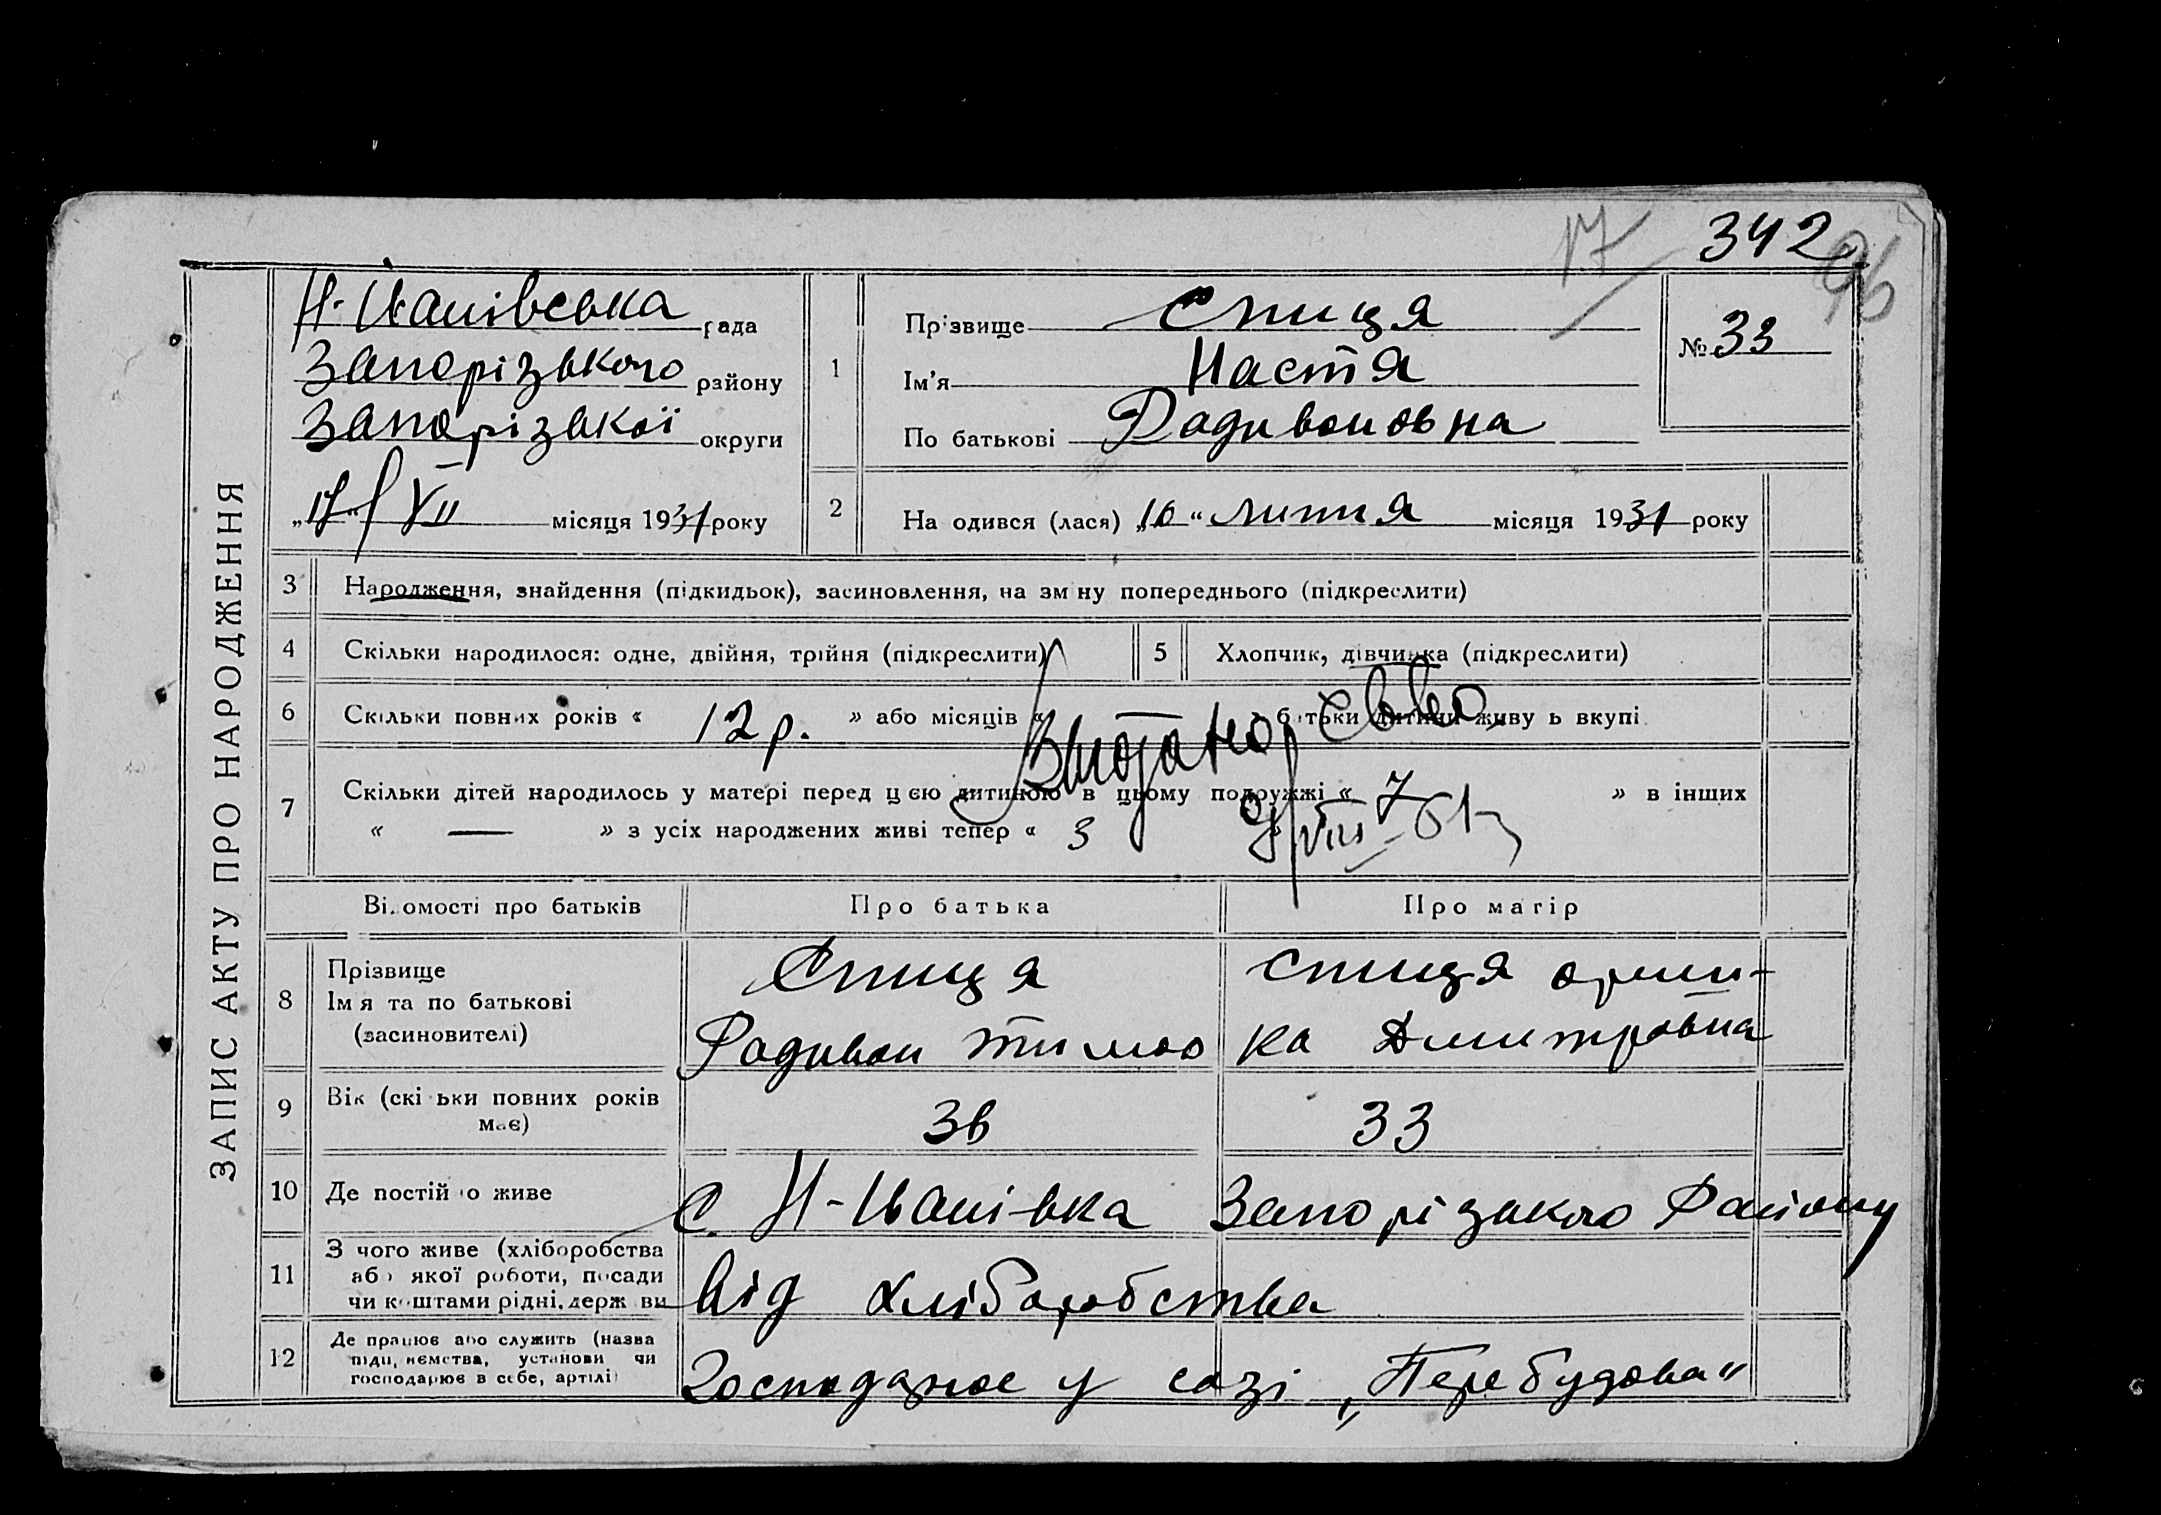 17
342
96
ЗАПИС АКТУ ПРО НАРОДЖЕННЯ
Н-Іванівська рада
Запорізького району
Запорізької округи
„17“ VII місяця 1931 року
1
Прізвище Спиця
Ім'я Настя
По батькові Радивоновна
№ 33
2
На одився (лася) „16“ липня місяця 1931 року
3 Народження, знайдення (підкидьок), засиновлення, на зм ну попереднього (підкреслити)
4 Скільки народилося: одне, двійня, трійня (підкреслити)
5 Хлопчик, дівчинка (підкреслити)
6 Скільки повних років « 12 р. » або місяців « батьки дитини живу ь вкупі
7 Скільки дітей народилось у матері перед цією дитиною в цьому подружжі « 7 » в інших
« — » з усіх народжених живі тепер « 3
Відомості про батьків Про батька Про матір
8 Прізвище
Ім я та по батькові
(засиновителі)
Спиця
Радивон Тимоо
Спиця Орин-
ка Дмитровна
9 Вік (скі ьки повних років має) 36 33
10 Де постій о живе с. Н-Іванівка Запорізького Району
11 З чого живе (хліборобства
або якої роботи, посади
чи коштами рідні, держ ви
Від хліборобства
12 Де працює або служить (назва
підп, иємства, установи чи
господарює в себе, артілі)
Господарює у созі „Перебудова“